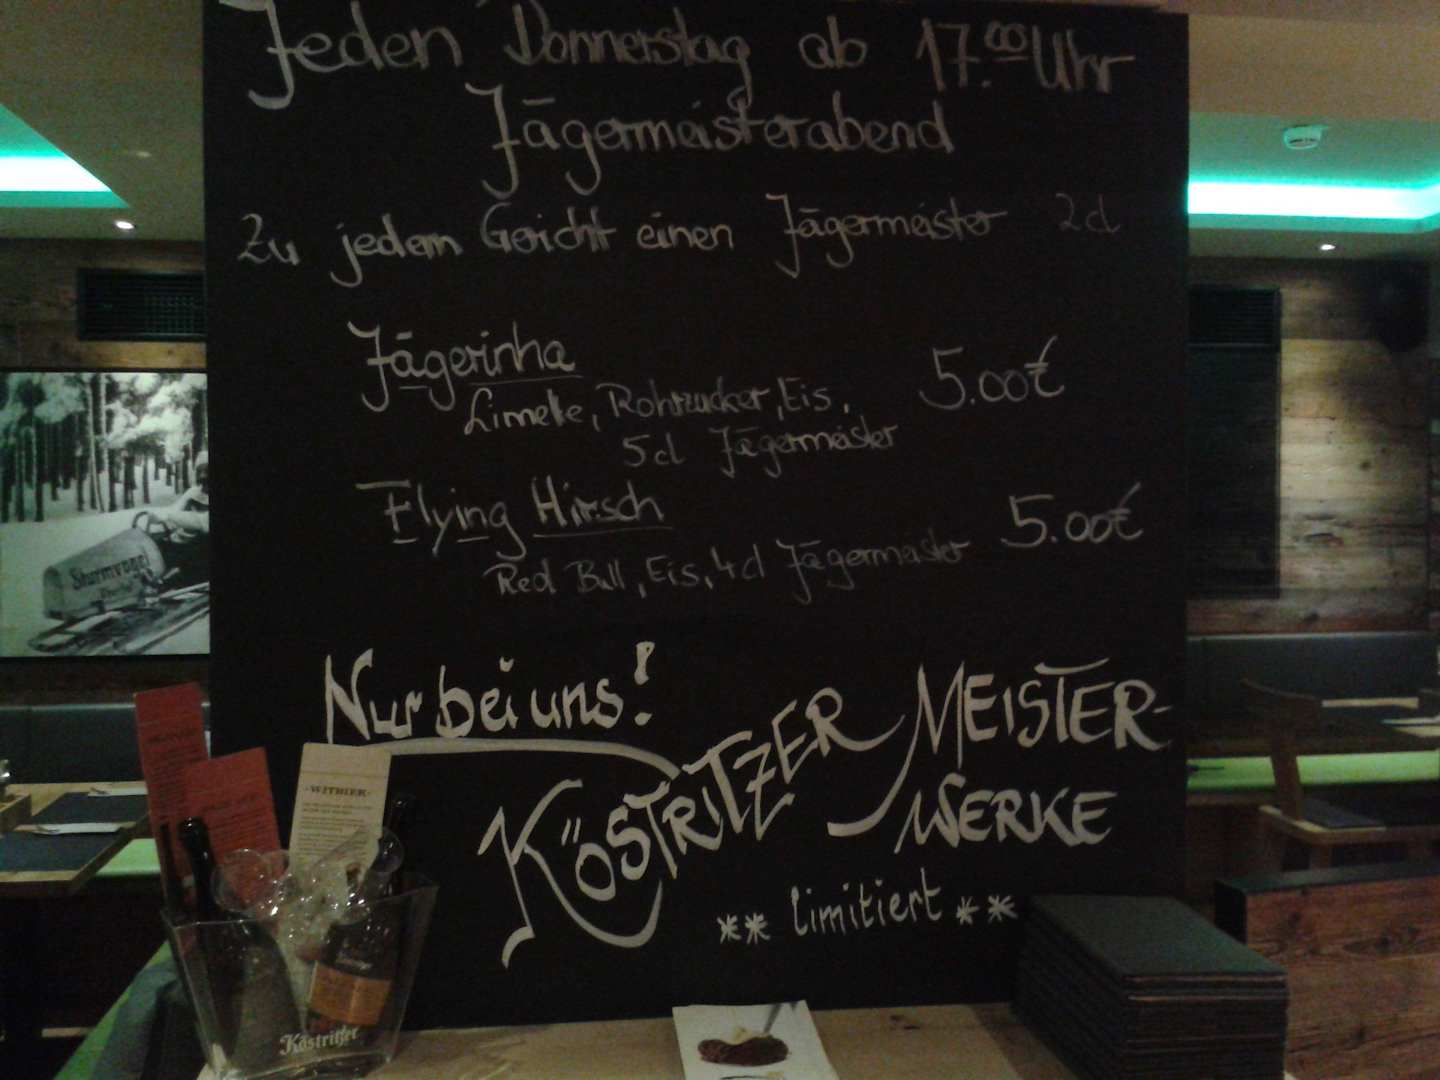 Jeden Donnerstag ab 17.00 Uhr
Jägermeisterabend
Zu jedem Gericht einen Jägermeister 2cl
Jägerinha
Limette, Rohrzucker, Eis, 5.00€
5cl Jägermeister
Flying Hirsch
Red Bull, Eis, 4cl Jägermeister 5.00€
Nur bei uns!
KÖSTRITZER MEISTER-
WERKE
** limitiert **
Sturmvogel
-WITBIER-
Köstritzer